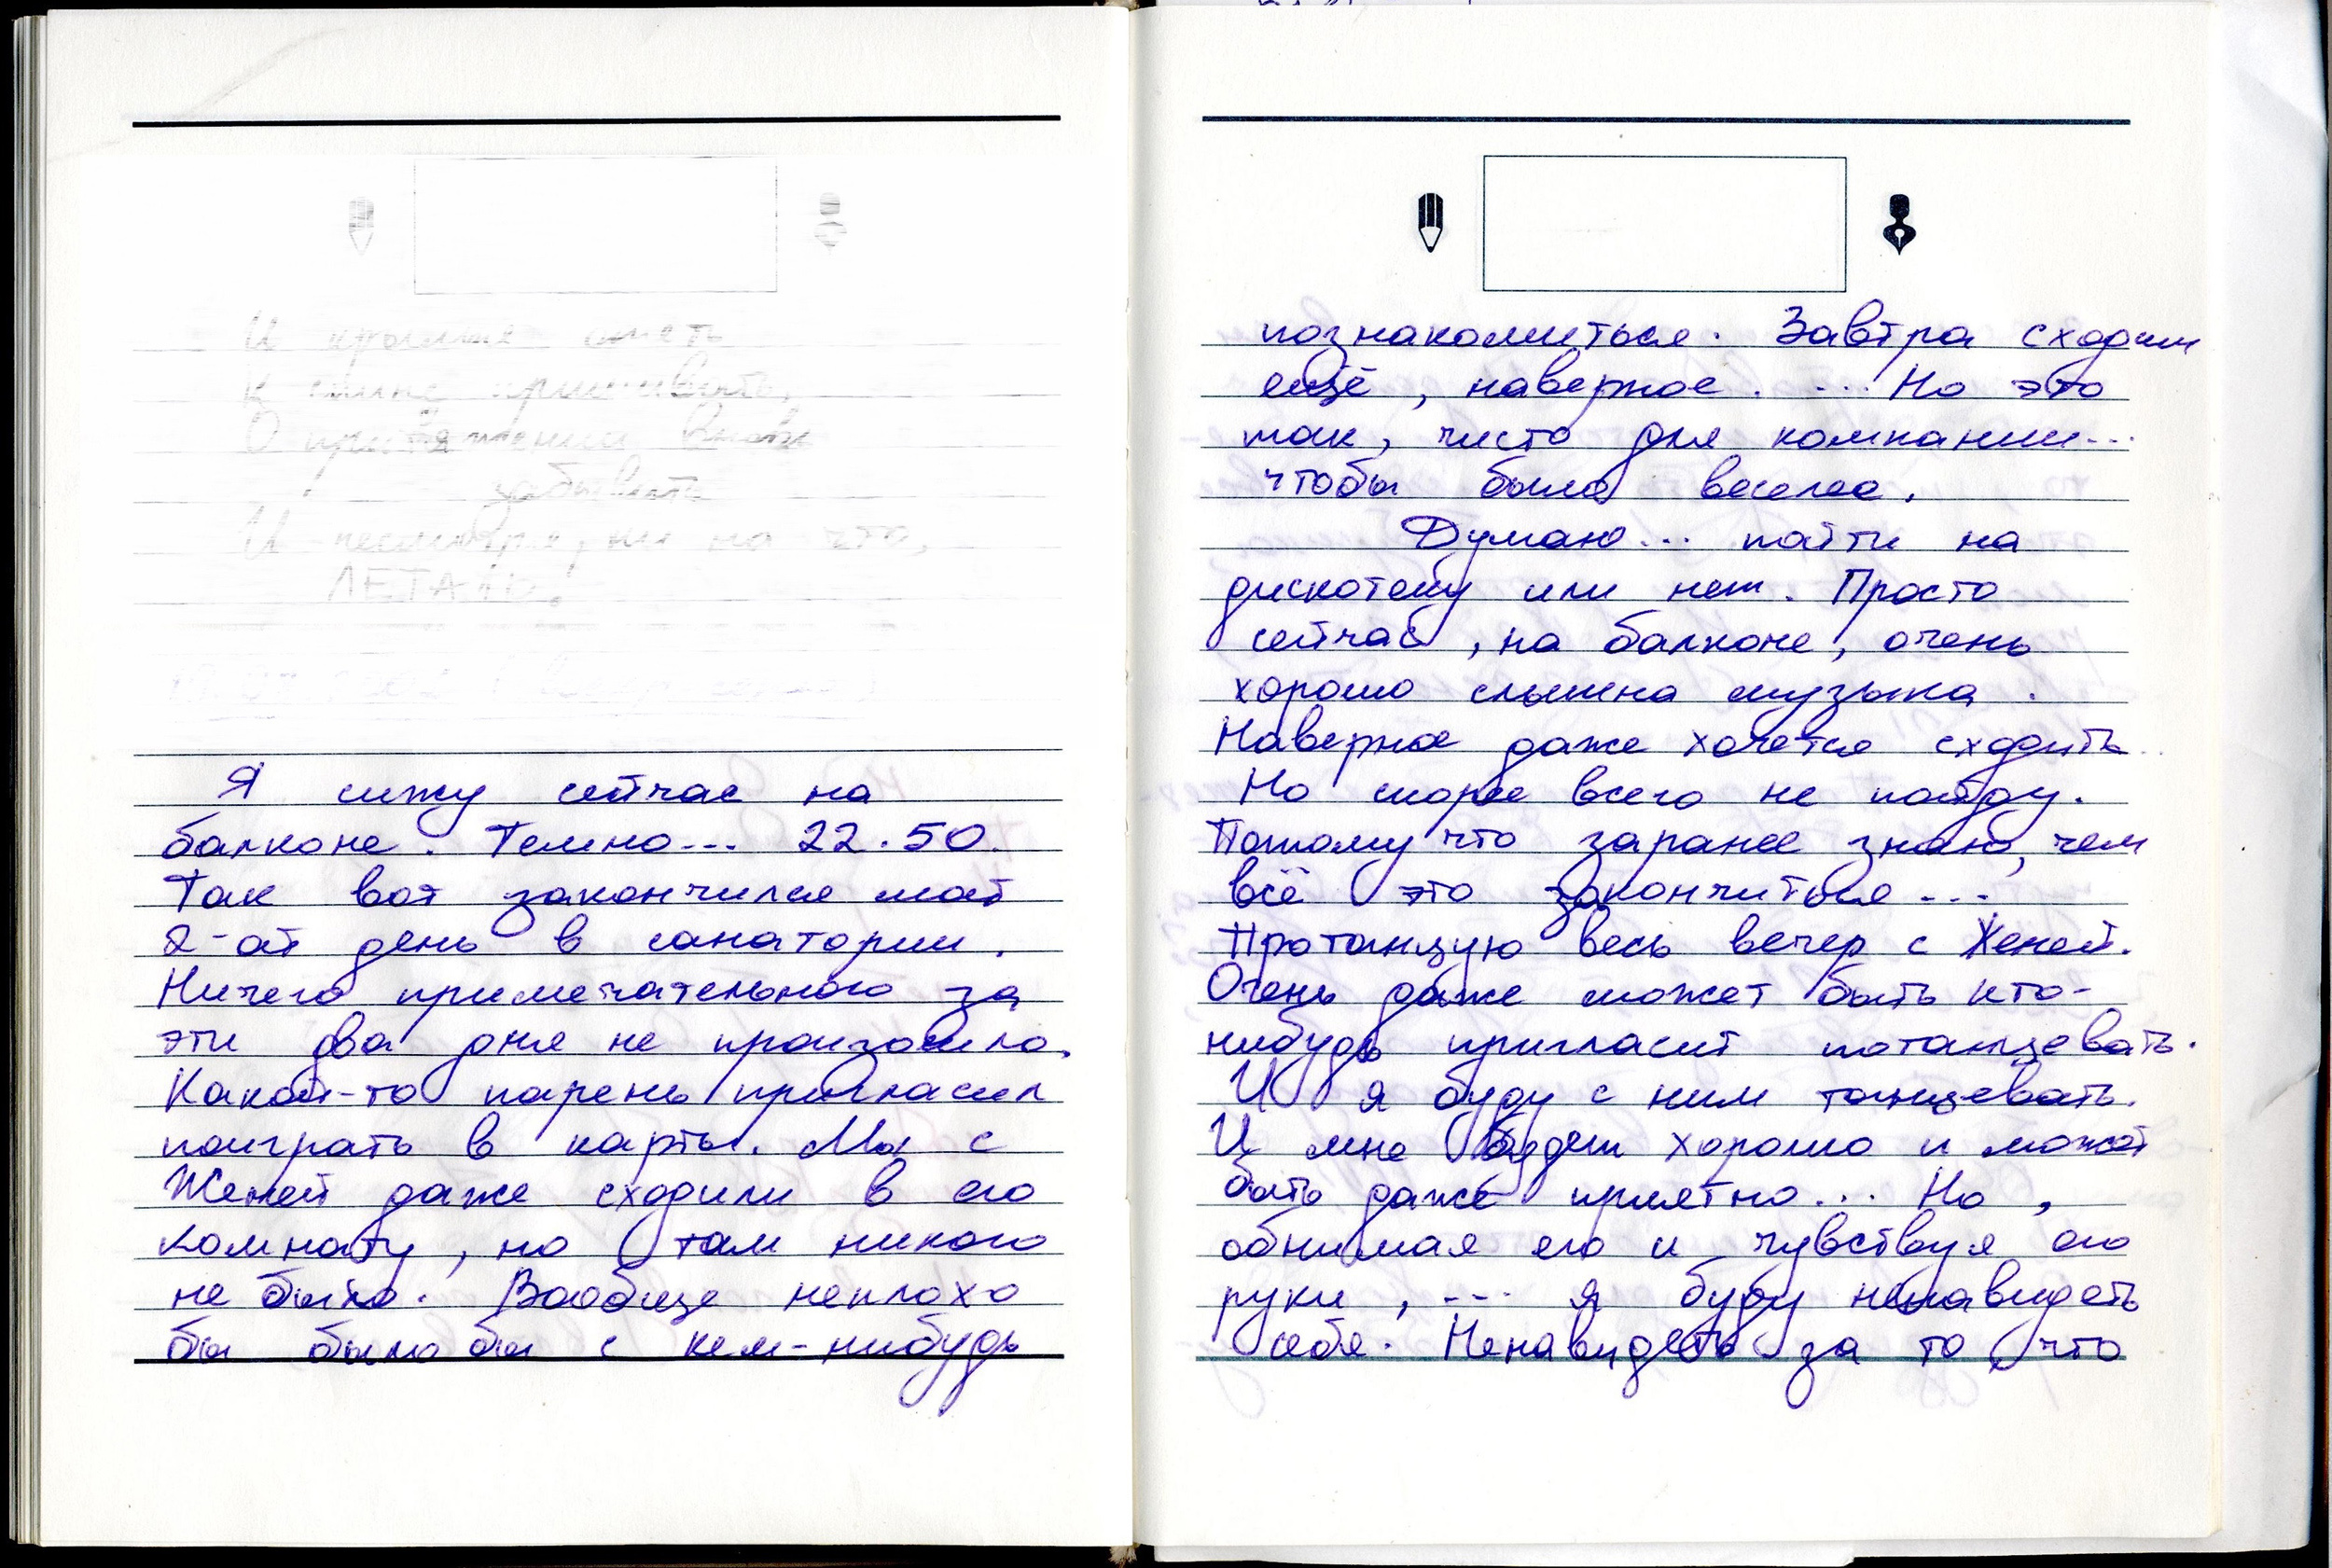 И крылья опять
К спине пришивать,
О притяжении вновь
забывать
И несмотря, ни на что,
ЛЕТАТЬ.
Я сижу сейчас на
балконе. Темно... 22.50.
Так вот закончился мой
2-ой день в санатории.
Ничего примечательного за
эти два дня не произошло.
Какой-то парень пригласил
поиграть в карты. Мы с
Женей даже сходили в его
комнату, но там никого
не было. Вообще неплохо
бы было бы с кем-нибудь
познакомиться. Завтра сходим
ещё, наверное. ... Но это
так, чисто для компании...
чтобы было веселее.
Думаю... пойти на
дискотеку или нет. Просто
сейчас, на балконе, очень
хорошо слышна музыка.
Наверное даже хочется сходить..
Но скорее всего не пойду.
Потому что заранее знаю, чем
всё это закончиться...
Протанцую весь вечер с Женей.
Очень даже может быть кто-
нибудь пригласит потанцевать.
И я буду с ним танцевать.
И мне будет хорошо и может
быть даже приятно... Но,
обнимая его и чувствуя его
руки, ... я буду ненавидеть
себя. Ненавидеть за то что